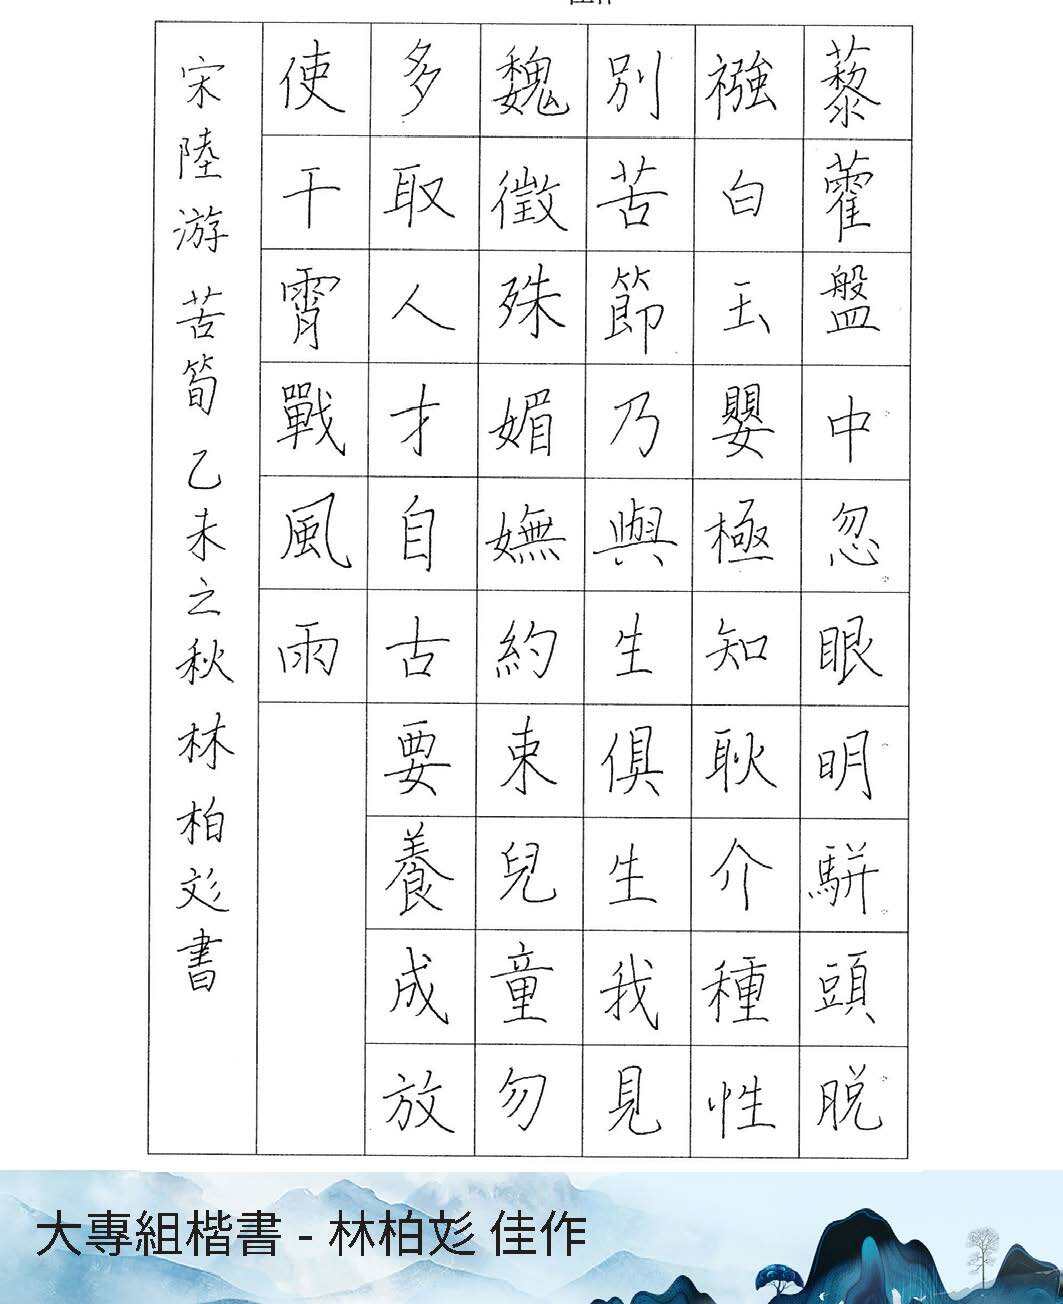 藜藿盤中忽眼明駢頭脫
襁白玉嬰極知耿介種性
別苦節乃與生俱生我見
魏徵殊媚嫵約束兒童勿
多取人才自古要養成放
使干霄戰風雨
宋陸游 苦筍 乙未之秋 林柏彣書
大專組楷書 - 林柏彣 佳作